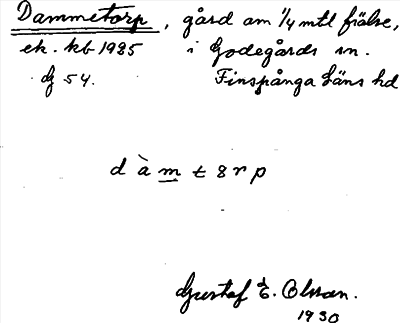 Dammetorp, gård om 1/4 mtl frälse,
ek. kb 1985 i Godegårds sn.
dg 54. Finspånga Läns hd
d à m t 8 r p
Gustaf E. Olsson.
1930